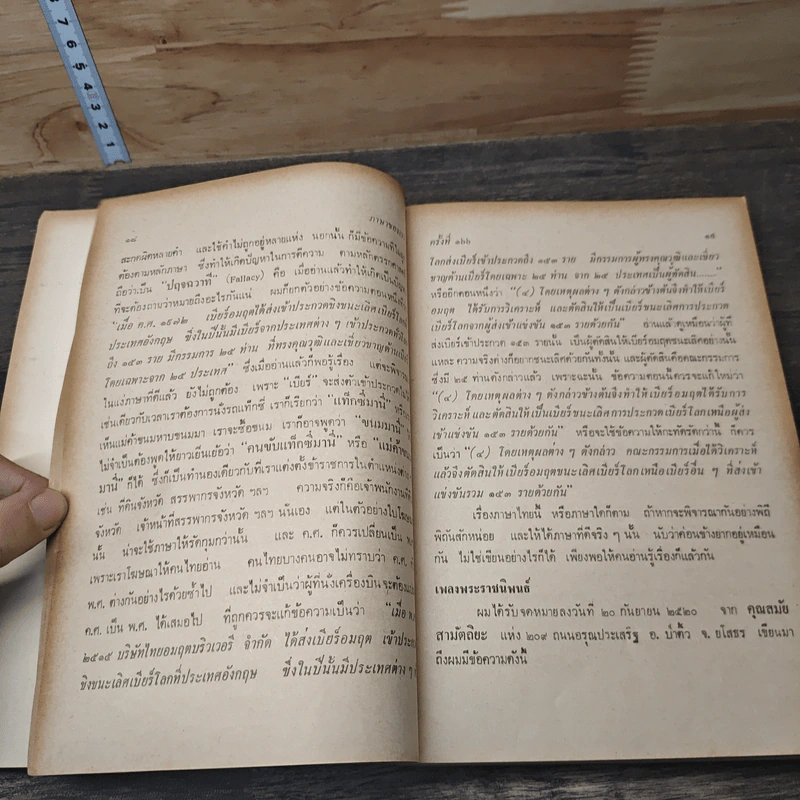 ๑๘ ภาษาของ
สะกดผิดหลายคำ และใช้คำไม่ถูกอยู่หลายแห่ง นอกนั้น ก็มีข้อความที่ไม่ถูก
ต้องตามหลักภาษา ซึ่งทำให้เกิดปัญหาในการตีความ ตามหลักตรรกศาสตร์
ถือว่าเป็น "ปฤจฉวาที" (Fallacy) คือ เมื่ออ่านแล้วทำให้เกิดเป็นปัญหา
ที่จะต้องถามว่าหมายถึงอะไรกันแน่ ผมก็ยกตัวอย่างข้อความตอนหนึ่งที่
"เมื่อ ค.ศ. ๑๙๗๒ เบียร์อมฤตได้ส่งเข้าประกวดชิงชนะเลิศเบียร์โลกที่
ประเทศอังกฤษ ซึ่งในปีนั้นมีเบียร์จากประเทศต่าง ๆ เข้าประกวด
ถึง ๑๕๓ ราย มีกรรมการ ๒๕ ท่าน ที่ทรงคุณวุฒิและเชี่ยวชาญด้านเบียร์
โดยเฉพาะจาก ๒๕ ประเทศ" ซึ่งเมื่ออ่านแล้วก็พอรู้เรื่อง แต่จะพิจารณา
ในแง่ภาษาที่ดีแล้ว ยังไม่ถูกต้อง เพราะ "เบียร์" จะส่งตัวเข้าประกวดไม่ได้
เช่นเดียวกับเวลาเราต้องการนั่งรถแท็กซี่ เราก็เรียกว่า "แท็กซี่มานี่" หรือ
เห็นแม่ค้าขนมหาบขนมมา เราจะซื้อขนม เราก็อาจพูดว่า "ขนมมานี่"
ไม่จำเป็นต้องพูดให้ยาวเยิ่นเย้อว่า "คนขับแท็กซี่มานี่" หรือ "แม่ค้าขนม
มานี่" ก็ได้ ซึ่งก็เป็นทำนองเดียวกับที่เราแต่งตั้งข้าราชการในตำแหน่ง
เช่น ที่ดินจังหวัด สรรพากรจังหวัด ฯลฯ ความจริงก็คือเจ้าพนักงานที่ดิน
จังหวัด เจ้าหน้าที่สรรพากรจังหวัด ฯลฯ นั่นเอง แต่ในตัวอย่าง
นั้น น่าจะใช้ภาษาให้รัดกุมกว่านั้น และ ค.ศ. ก็ควรเปลี่ยนเป็น พ.ศ.
เพราะเราโฆษณาให้คนไทยอ่าน คนไทยบางคนอาจไม่ทราบว่า ค.ศ.
พ.ศ. ต่างกันอย่างไรด้วยซ้ำไป และไม่จำเป็นว่าผู้ที่นั่งเครื่องบินจะต้อง
ค.ศ. เป็น พ.ศ. ได้เสมอไป ที่ถูกควรจะแก้ข้อความเป็นว่า "เมื่อ พ.ศ.
๒๕๑๕ บริษัทไทยอมฤตบริวเวอรี่ จำกัด ได้ส่งเบียร์อมฤต เข้าประกวด
ชิงชนะเลิศเบียร์โลกที่ประเทศอังกฤษ ซึ่งในปีนั้นมีประเทศต่าง ๆ
ครั้งที่ ๑๖๖ ๑๙
โลกส่งเบียร์เข้าประกวดถึง ๑๕๓ ราย มีกรรมการผู้ทรงคุณวุฒิและเชี่ยว
ชาญด้านเบียร์โดยเฉพาะ ๒๕ ท่าน จาก ๒๕ ประเทศเป็นผู้ตัดสิน......"
หรืออีกตอนหนึ่งว่า "(๔) โดยเหตุผลต่าง ๆ ดังกล่าวข้างต้นจึงทำให้เบียร์
อมฤต ได้รับการวิเคราะห์ และตัดสินให้เป็นเบียร์ชนะเลิศการประกวด
เบียร์โลกจากผู้ส่งเข้าแข่งขัน ๑๕๓ รายด้วยกัน" อ่านแล้วดูเหมือนว่าผู้ที่
ส่งเบียร์เข้าประกวด ๑๕๓ รายนั้น เป็นผู้ตัดสินให้เบียร์อมฤตชนะเลิศอย่างนั้น
แหละ ความจริงต่างก็อยากชนะเลิศด้วยกันทั้งนั้น และผู้ตัดสินคือคณะกรรมการ
ซึ่งมี ๒๕ ท่านดังกล่าวแล้ว เพราะฉะนั้น ข้อความตอนนี้ควรจะแก้ใหม่ว่า
"(๔) โดยเหตุผลต่าง ๆ ดังกล่าวข้างต้นจึงทำให้เบียร์อมฤตได้รับการ
วิเคราะห์ และตัดสินให้เป็นเบียร์ชนะเลิศการประกวดเบียร์โลกเหนือผู้ส่ง
เข้าแข่งขัน ๑๕๓ รายด้วยกัน" หรือจะใช้ข้อความให้กะทัดรัดกว่านี้ ก็ควร
เป็นว่า "(๔) โดยเหตุผลต่าง ๆ ดังกล่าว คณะกรรมการเมื่อได้วิเคราะห์
แล้วจึงตัดสินให้เบียร์อมฤตชนะเลิศเบียร์โลกเหนือเบียร์อื่น ๆ ที่ส่งเข้า
แข่งขันรวม ๑๕๓ รายด้วยกัน"
เรื่องภาษาไทยนี้ หรือภาษาใดก็ตาม ถ้าหากจะพิจารณากันอย่างพิถี
พิถันสักหน่อย และให้ได้ภาษาที่ดีจริง ๆ นั้น นับว่าค่อนข้างยากอยู่เหมือน
กัน ไม่ใช่เขียนอย่างไรก็ได้ เพียงพอให้คนอ่านรู้เรื่องก็แล้วกัน
เพลงพระราชนิพนธ์
ผมได้รับจดหมายลงวันที่ ๒๐ กันยายน ๒๕๒๐ จาก คุณสมัย
สามัตถิยะ แห่ง ๒๐๙ ถนนอรุณประเสริฐ อ. ป่าติ้ว จ. ยโสธร เขียนมา
ถึงผมมีข้อความดังนี้
7
6
5
4
3
2
1